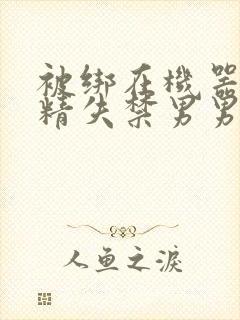 被绑在機器
精失禁男男
人鱼之淚